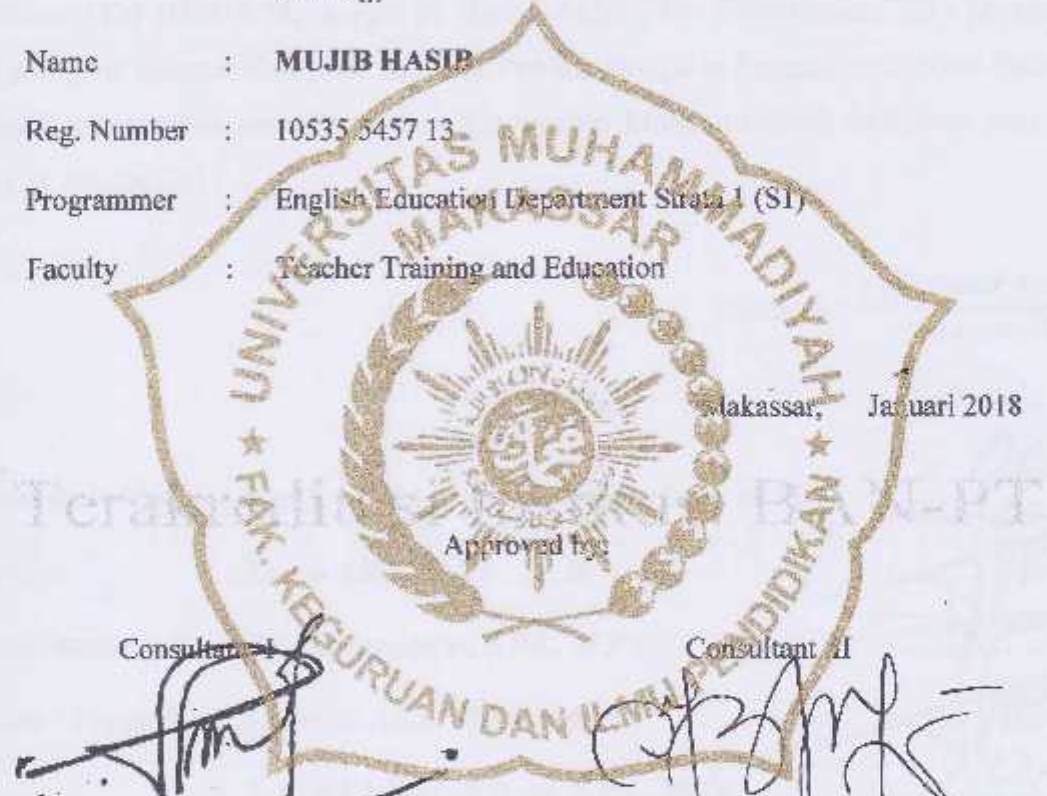 Name : MUJIB HASIB
Reg. Number : 10535 5457 13
Programmer : English Education Department Strata 1 (S1)
Faculty : Teacher Training and Education
UNIVERSITAS MUHAMMADIYAH
MAKASSAR
★ FAK. KEGURUAN DAN ILMU PENDIDIKAN ★
Makassar, Januari 2018
BAN-PT
Approved by:
Consultant I Consultant II